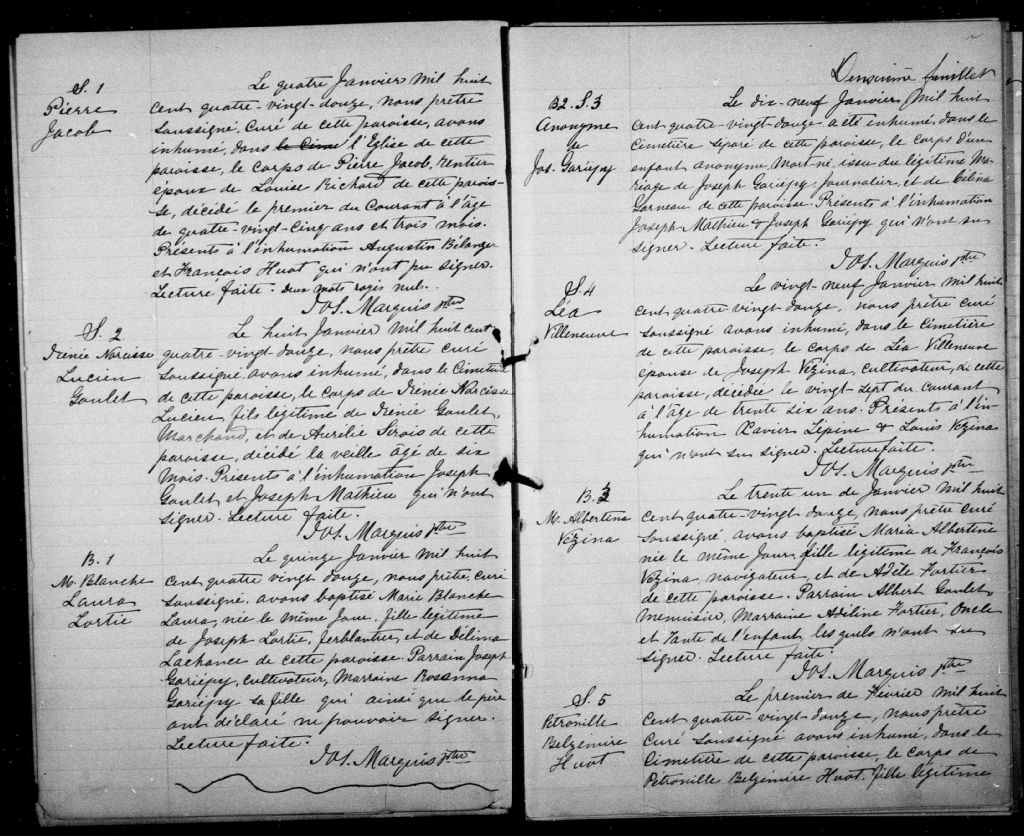 S. 1
Pierre
Jacob
Le quatre Janvier mil huit
cent quatre-vingt-douze, nous prêtre
soussigné, curé de cette paroisse, avons
inhumé, dans le Cime l'Eglise de cette
paroisse, le corps de Pierre Jacob, Rentier
époux de Louise Richard de cette parois-
se, décédé le premier du courant à l'âge
de quatre-vingt-cinq ans et trois mois.
Présents à l'inhumation Augustin Bélanger
et François Huot qui n'ont pu signer.
Lecture faite. Deux mots rayés nul.
Jos. Marquis ptre
S. 2
Irénée Narcisse
Lucien
Goulet
Le huit Janvier mil huit cent
quatre-vingt douze, nous prêtre curé
soussigné, avons inhumé, dans le Cimetière
de cette paroisse, le corps de Irénée Narcisse
Lucien, fils légitime de Irénée Goulet,
Marchand, et de Aurélie Sirois de cette
paroisse, décédé la veille âgé de six
mois. Présents à l'inhumation Joseph
Goulet et Joseph Mathieu qui n'ont
signer. Lecture faite.
Jos. Marquis ptre
B. 1
M. Blanche
Laura
Lortie
Le quinze Janvier mil huit
cent quatre vingt douze, nous prêtre, curé
soussigné, avons baptisé Marie Blanche
Laura, née le même jour, fille légitime
de Joseph Lortie, ferblantier, et de Délima
Lachance de cette paroisse. Parrain Joseph
Gariépy, cultivateur, Marraine Rosanna
Gariépy sa fille qui ainsi que le père
ont déclaré ne pouvoir signer.
Lecture faite.
Jos. Marquis ptre
Deuxième feuillet
B2. S. 3
Anonyme
de
Jos. Gariépy
Le dix-neuf Janvier mil huit
cent quatre-vingt douze a été inhumé, dans le
Cimetière séparé de cette paroisse, le corps d'un
enfant anonyme, mort-né, issu du légitime Ma-
riage de Joseph Gariépy, Journalier, et de Célina
Garneau de cette paroisse. Présents à l'inhumation
Joseph-Mathieu & Joseph Gariépy qui n'ont su
signer. Lecture faite.
Jos. Marquis ptre
S. 4
Léa
Villeneuve
Le vingt-neuf Janvier mil huit
cent quatre-vingt douze, nous prêtre curé
soussigné avons inhumé, dans le cimetière
de cette paroisse, le corps de Léa Villeneuve
épouse de Joseph Vézina, cultivateur, de cette
paroisse, décédée le vingt sept du courant
à l'âge de trente six ans. Présents à l'in-
humation Xavier Lépine & Louis Vézina
qui n'ont su signer. Lecture faite.
Jos. Marquis ptre
B. 3
M. Albertina
Vézina
Le trente un de Janvier mil huit
cent quatre-vingt-douze, nous prêtre curé
soussigné, avons baptisé Maria Albertine
née le même jour, fille légitime de François
Vézina, navigateur, et de Adèle Fortier
de cette paroisse. Parrain Albert Goulet
Menuisier, Marraine Adéline Fortier, Oncle
et Tante de l'enfant, lesquels n'ont su
signer. Lecture faite.
Jos. Marquis ptre
S. 5
Petronille
Belzémire
Huot
Le premier de Février mil huit
cent quatre-vingt-douze, nous prêtre
curé soussigné avons inhumé, dans le
Cimetière de cette paroisse, le corps de
Petronille Belzémire Huot, fille légitime